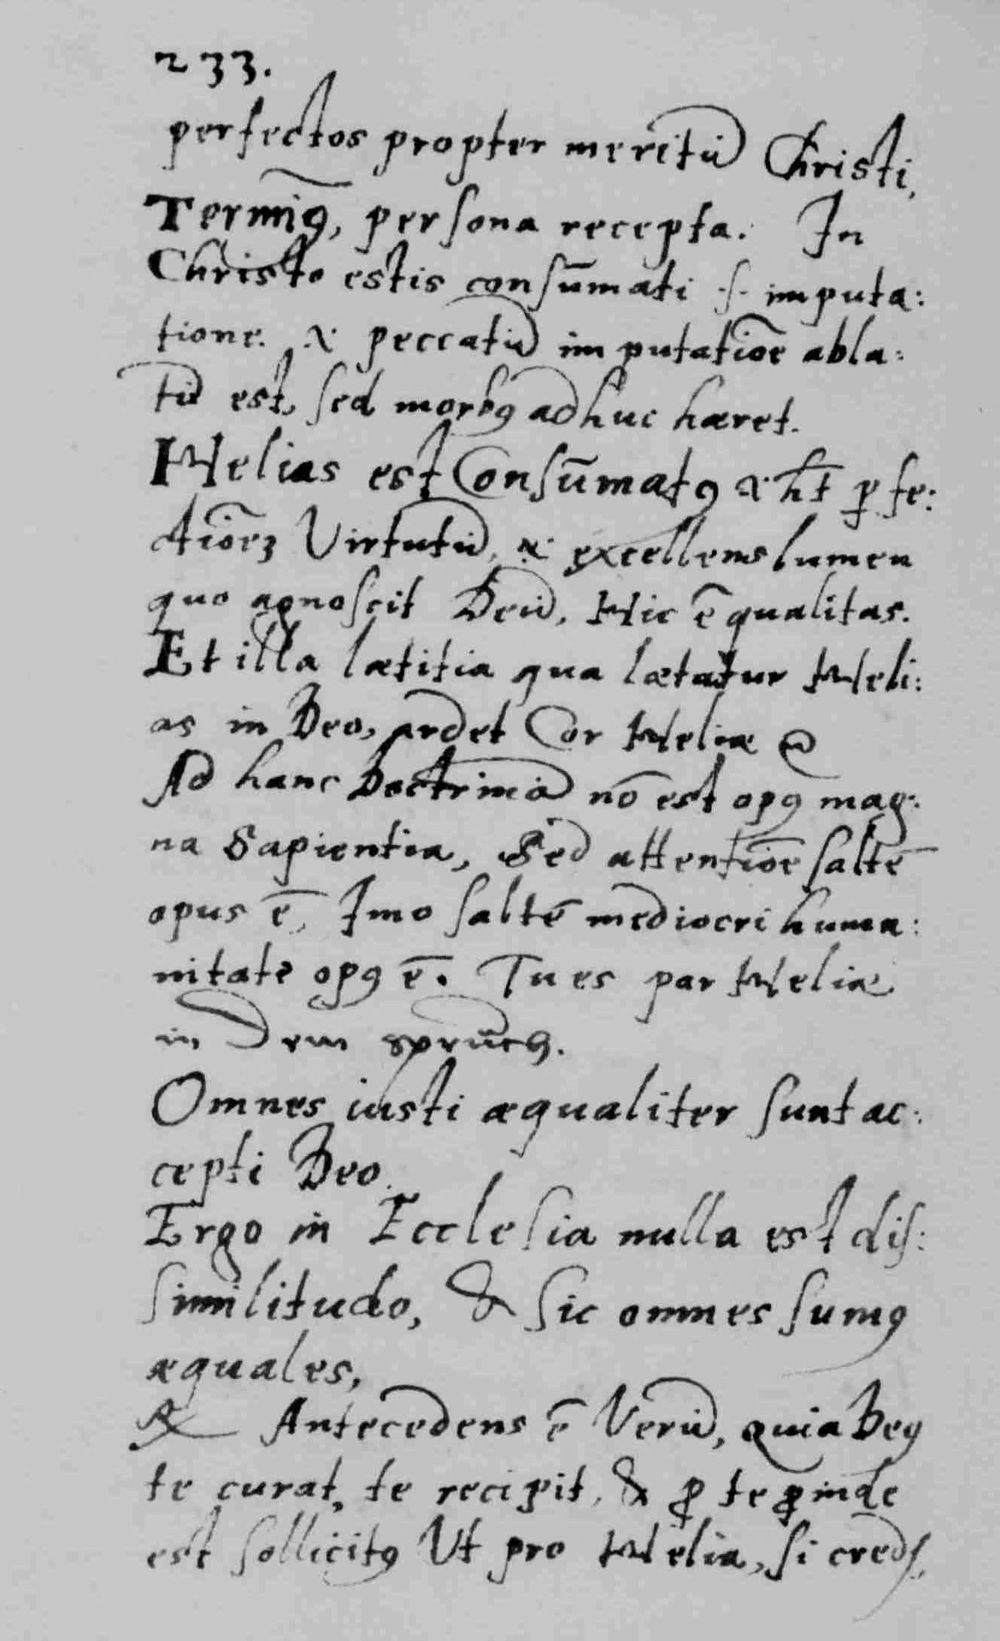 233.
perfectos propter meritū Christi,
Terminꝰ, persona recepta. In
Christo estis consūmati .s. imputa:
tione. & peccatū imputatiōe abla:
tū est, sed morbꝰ adhuc hæret.
Helias est Consūmatꝰ & hēt ꝑfe:
ctiōeꝫ Virtutū, & excellens lumen
quo agnoscit Deū, Hic ē qualitas.
Et illa lætitia qua lætatur Heli:
as in Deo, ardet Cor Heliæ
Ad hanc Doctrinā nō est opꝰ mag:
na Sapientia, Sed attentiōe saltē
opus ē, Imo saltē mediocri huma:
nitate opꝰ ē. Tu es par Heliæ
in dem spruch.
Omnes iusti æqualiter sunt ac:
cepti Deo.
Ergo in Ecclesia nulla est dis:
similitudo, & sic omnes sumꝰ
æquales,
℞ Antecedens ē Verū, quia Deꝰ
te curat, te recipit, & ꝓ te ꝓinde
est sollicitꝰ Ut pro Helia, si credis,